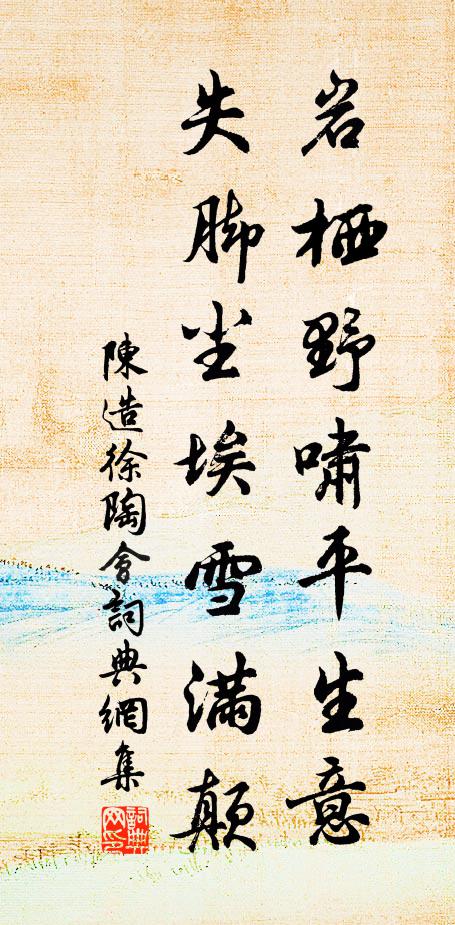 岩栖野啸平生意
失脚尘埃雪满颠
陳造徐陶會詞典網集
詞典网印